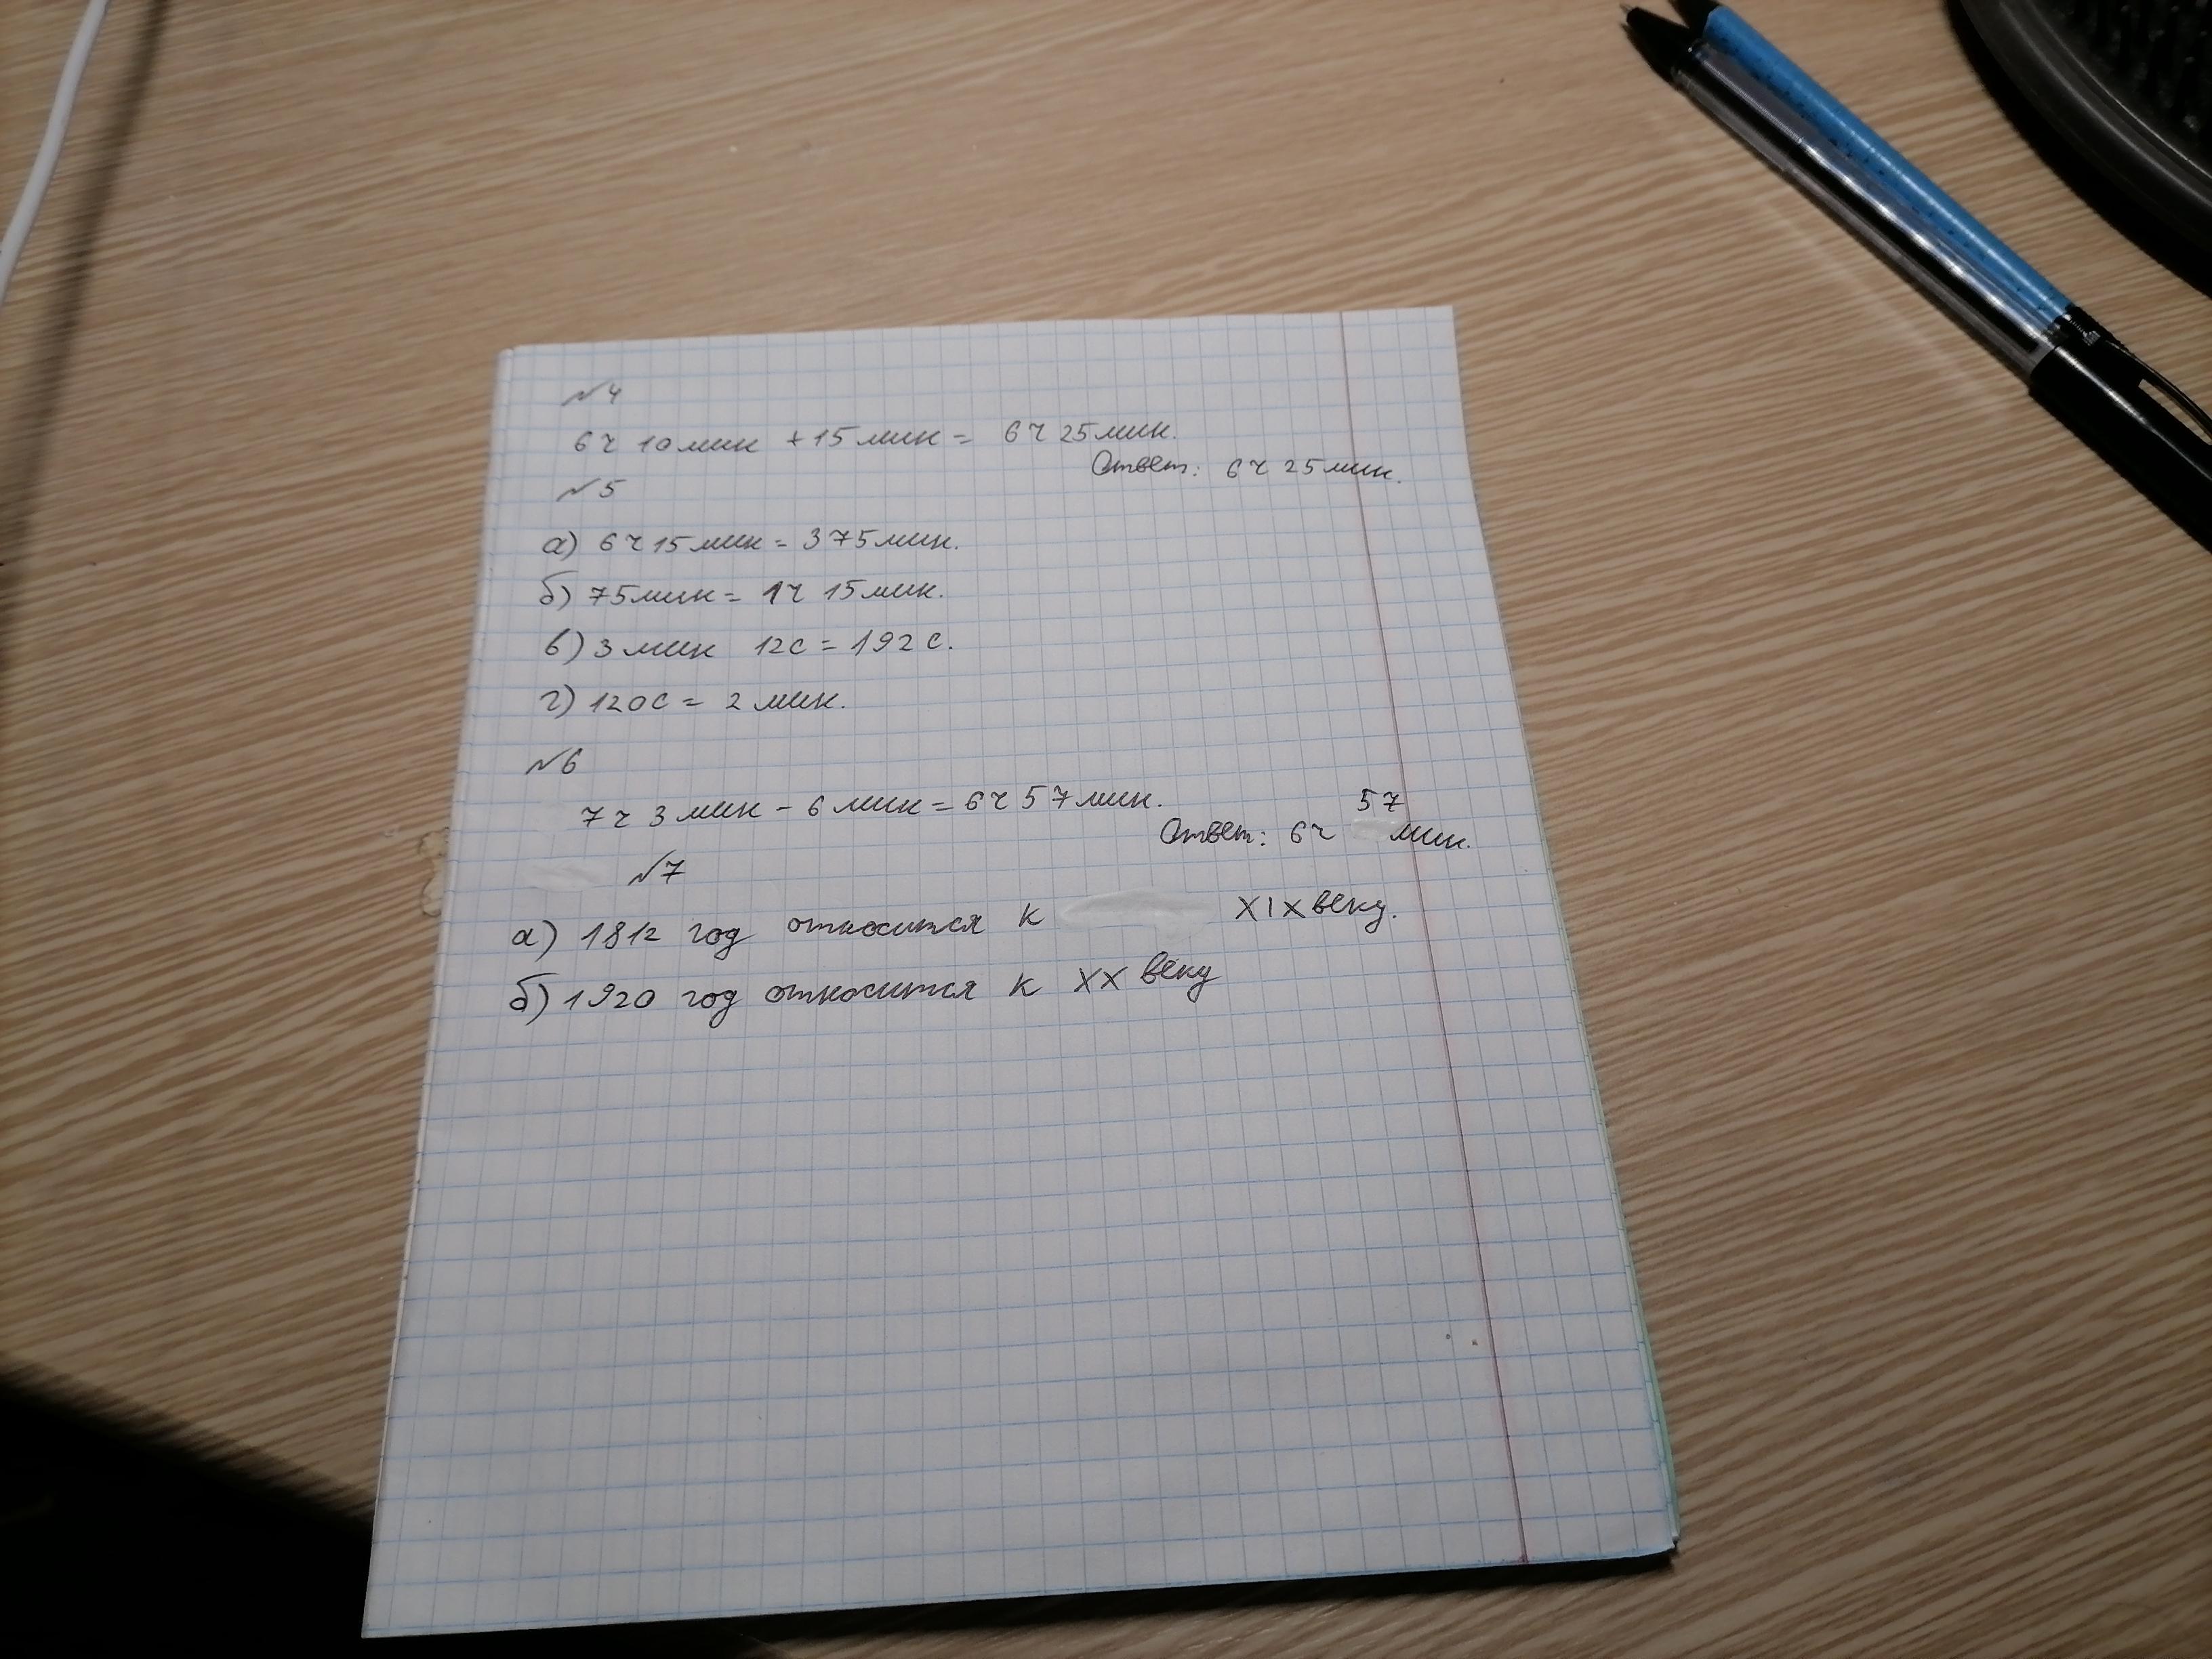 №4
6ч 10мин +15мин= 6ч 25мин.
Ответ: 6ч 25мин.
№5
а) 6ч 15мин = 375мин.
б) 75мин= 1ч 15мин.
в) 3мин 12с = 192с.
г) 120с = 2мин.
№6
7ч 3мин - 6мин = 6ч 57мин.
Ответ: 6ч 57 мин.
№7
а) 1812 год относится к XIX веку.
б) 1920 год относится к XX веку